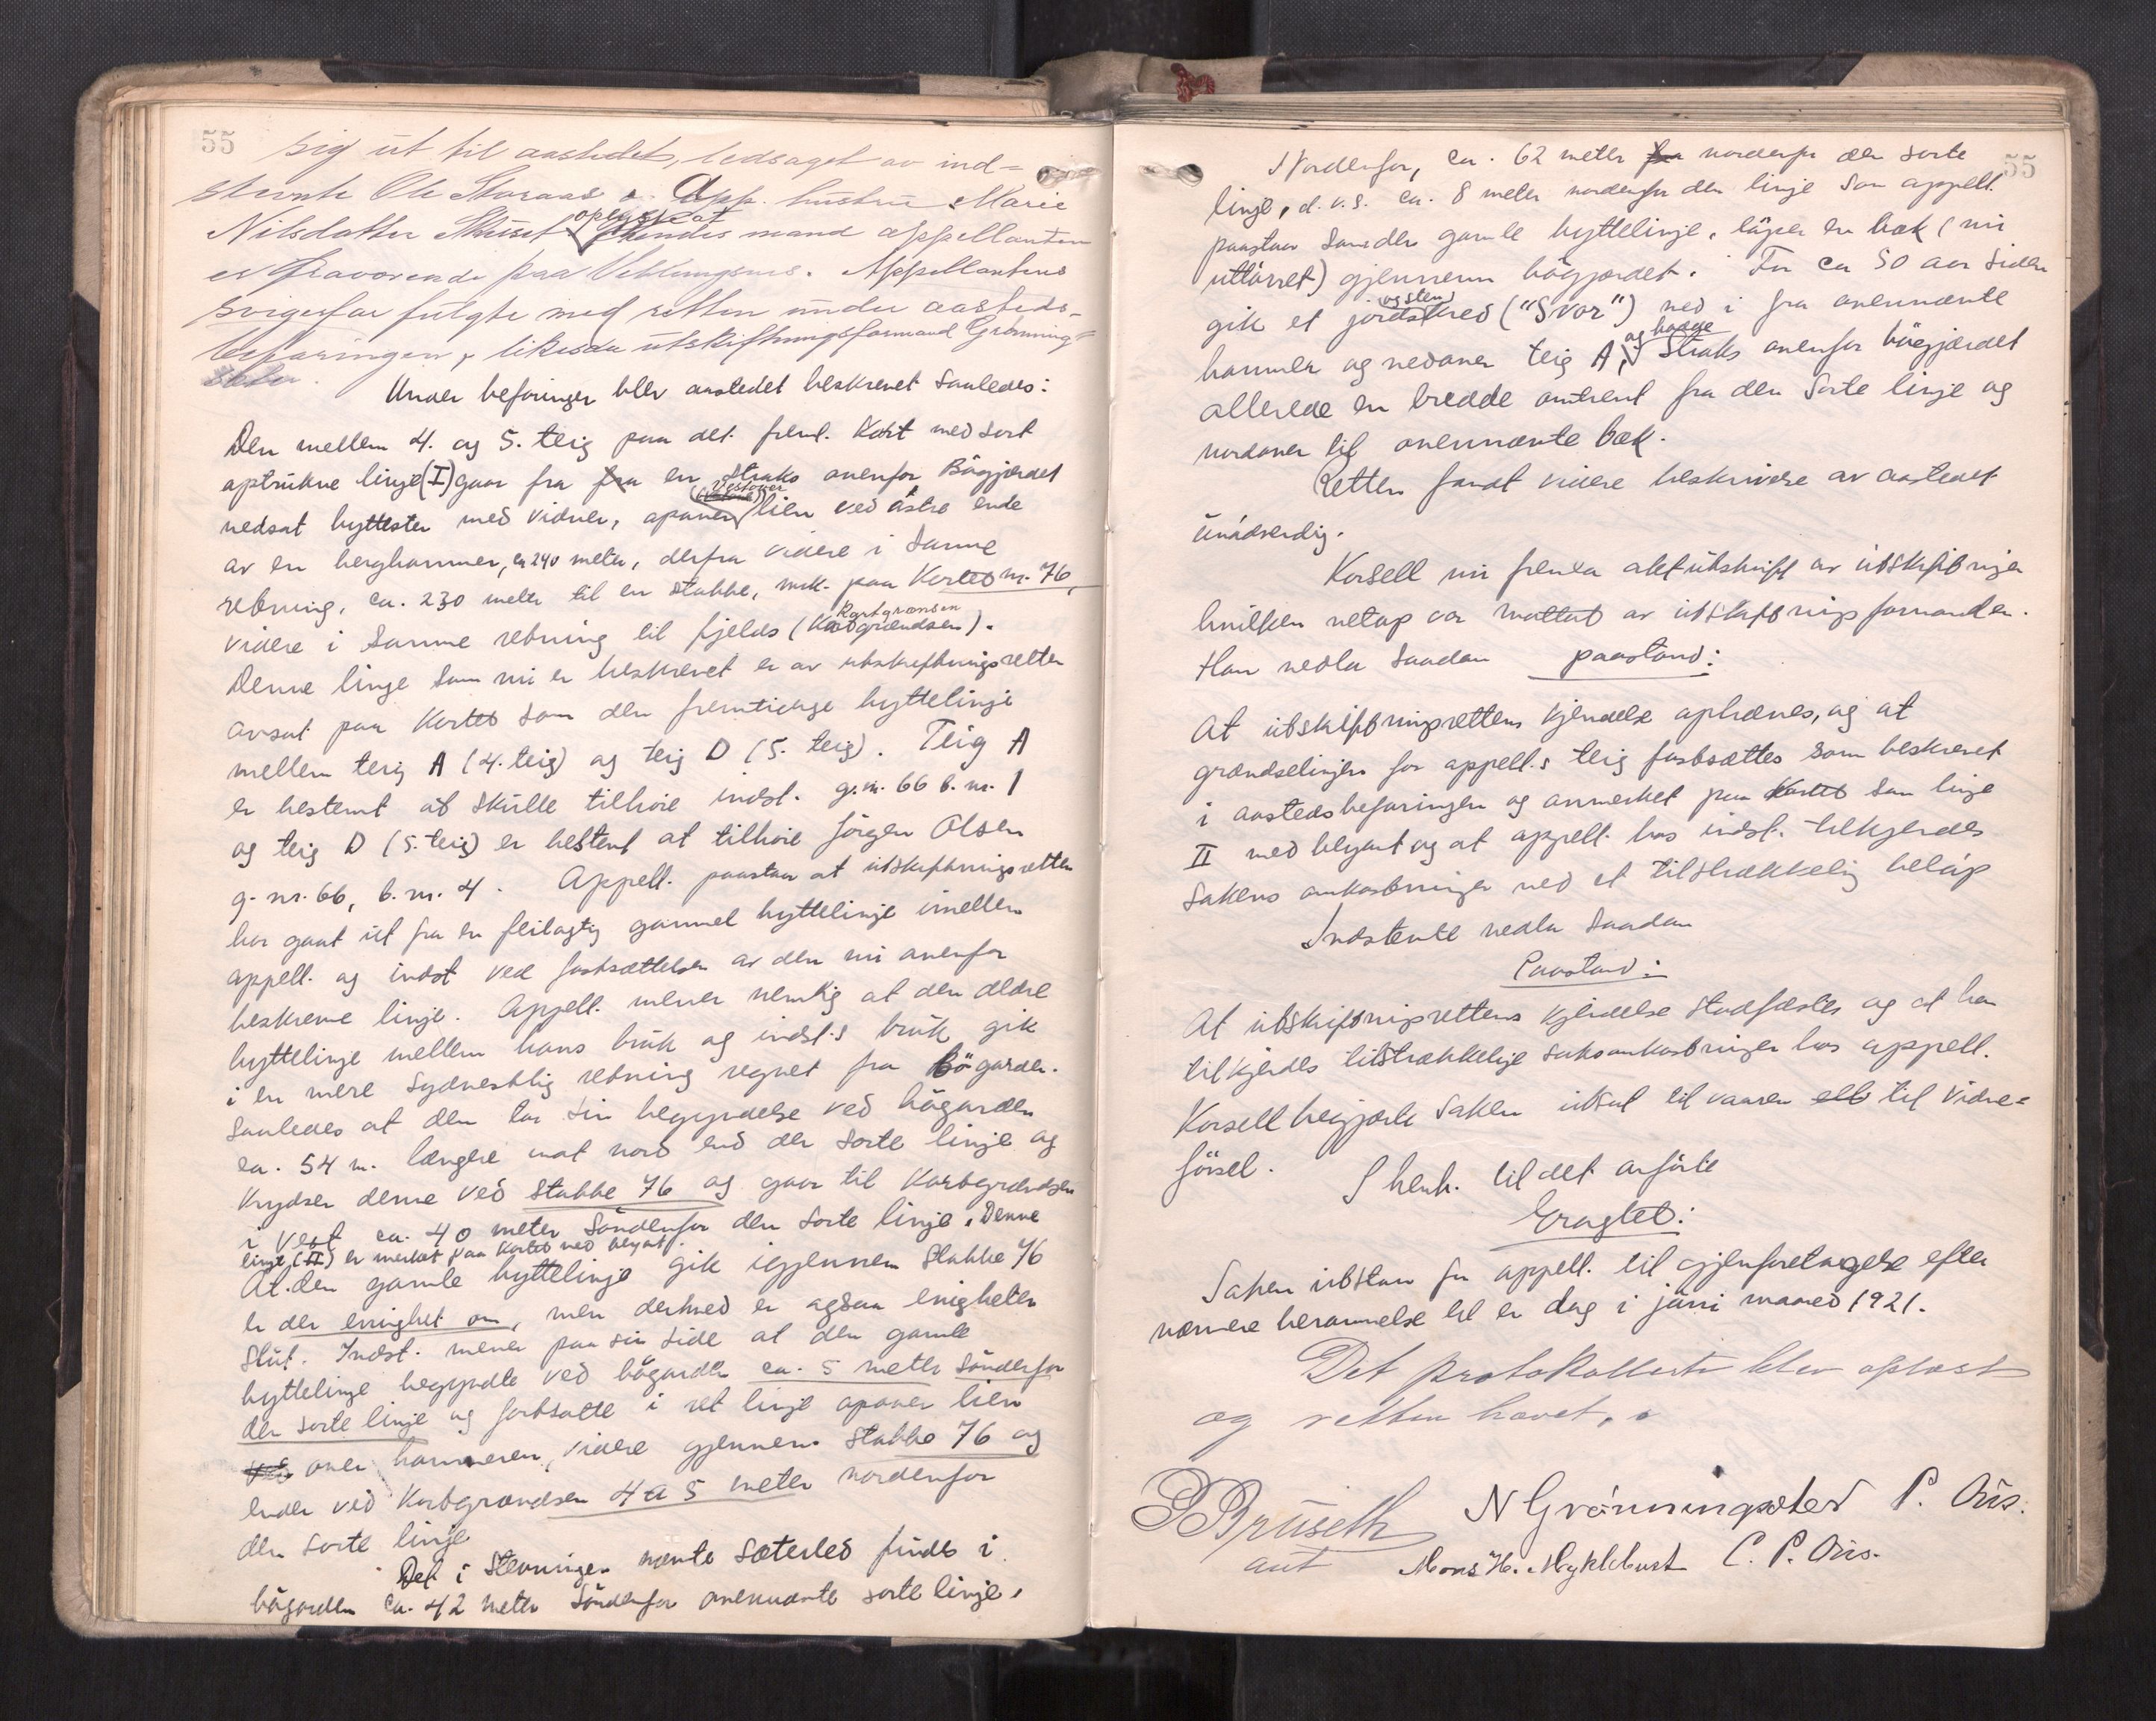 55
sig ut til aastedet, ledsaget av ind=
stevnte Ole Storaas o. App. hustru Marie
Nilsdatter Skuset oplyste at hendes mand appellanten
er fraværende paa Veblungsnes. Appellantens
svigerfar fulgte med retten under aasteds-
befaringen, likesaa utskiftningsformand Grønning=
sæter.
Under befaringen blev aastedet beskrevet saaledes:
Den mellem 4. og 5. teig paa det freml. Kart med sort
optrukne linje (I) gaar fra en straks ovenfor Bøgjærdet
nedsat byttesten med vidner, opover vestover lien ved østre ende
av en berghammer, ca 240 meter, derfra videre i samme
retning, ca. 230 meter til en stabbe, mrk. paa Kartet nr. 76,
videre i samme retning til fjelds (Kartgrænsen).
Denne linje som nu er beskrevet er av utskiftningsretten
avsat paa Kartet som den fremtidige byttelinje
mellem teig A (4. teig) og teig D (5. teig). Teig A
er bestemt at skulle tilhøre indst. g.nr. 66 b.nr. 1
og teig D (5. teig) er bestemt at tilhøre Jørgen Olsen
g.nr. 66, b.nr. 4. Appell. paastaar at utskiftningsretten
har gaat ut fra en feilagtig gammel byttelinje imellem
appell. og indst ved fastsættelsen av den nu ovenfor
beskrevne linje. Appell. mener nemlig at den ældre
byttelinje mellem hans bruk og indst.s bruk gik
i en mere sydvestlig retning regnet fra bøgarden.
Saaledes at den tar sin begyndelse ved bøgarden
ca. 54 m. længere mot nord end den sorte linje og
krydser denne ved stabbe 76 og gaar til Kartgrændsen
i vest ca. 40 meter søndenfor den sorte linje. Denne
linje (II) er merket paa Kartet med blyant.
At den gamle byttelinje gik igjennem stabbe 76
er der enighet om, men dermed er ogsaa enigheten
slut. Indst. mener paa sin side at den gamle
byttelinje begyndte ved bøgarden ca. 5 meter søndenfor
den sorte linje og fortsatte i ret linje opover lien
over hammeren, videre gjennem stabbe 76 og
ender ved Kartgrændsen 4 a 5 meter nordenfor
den sorte linje
Det i stevningen nævnte sæterled findes i
bøgarden ca. 42 meter søndenfor ovennævnte sorte linje.
55
Nordenfor, ca. 62 meter nordenfor den sorte
linje, d.v.s. ca. 8 meter nordenfor den linje som appell.
paastaar som den gamle byttelinje, løper en bæk (nu
uttørret) gjennem bøgjærdet. For ca 50 aar siden
gik et jord og sten skred ("Svor") ned i fra ovennævnte
hammer og nedover teig A, og hadde straks ovenfor bøgjærdet
allerede en bredde omtrent fra den sorte linje og
nordover til ovennævnte bæk.
Retten fandt videre beskrivelse av aastedet
unødvendig.
Korsell nu fremla aktutskrift av utskiftningen
hvilken netop var mottat av utskiftningsformanden.
Han nedla saadan paastand:
At utskiftningsrettens kjendelse ophæves, og at
grændselinjen for appell.s teig fastsættes som beskrevet
i aastedsbefaringen og anmerket paa Kartet som linje
II med blyant og at appell. hos indst. tilkjendes
sakens omkostninger ved et tilstrækkelig beløp
Indstevnte nedla saadan
Paastand:
At utskiftningsrettens kjendelse stadfæstes og at han
tilkjendes tilstrækkelige saksomkostninger hos appell.
Korsell begjærte saken utsat til vaaren til vidne=
førsel.
I henh. til det anførte
Eragtet:
Saken utstaar for appell. til gjenforetagelse efter
nærmere berammelse til en dag i juni maaned 1921.
Det protokollerte blev oplæst
og retten hævet.
P Bruseth
aut
N Grönningsæter P. Ous.
Mons H. Myklebust C. P. Ous.